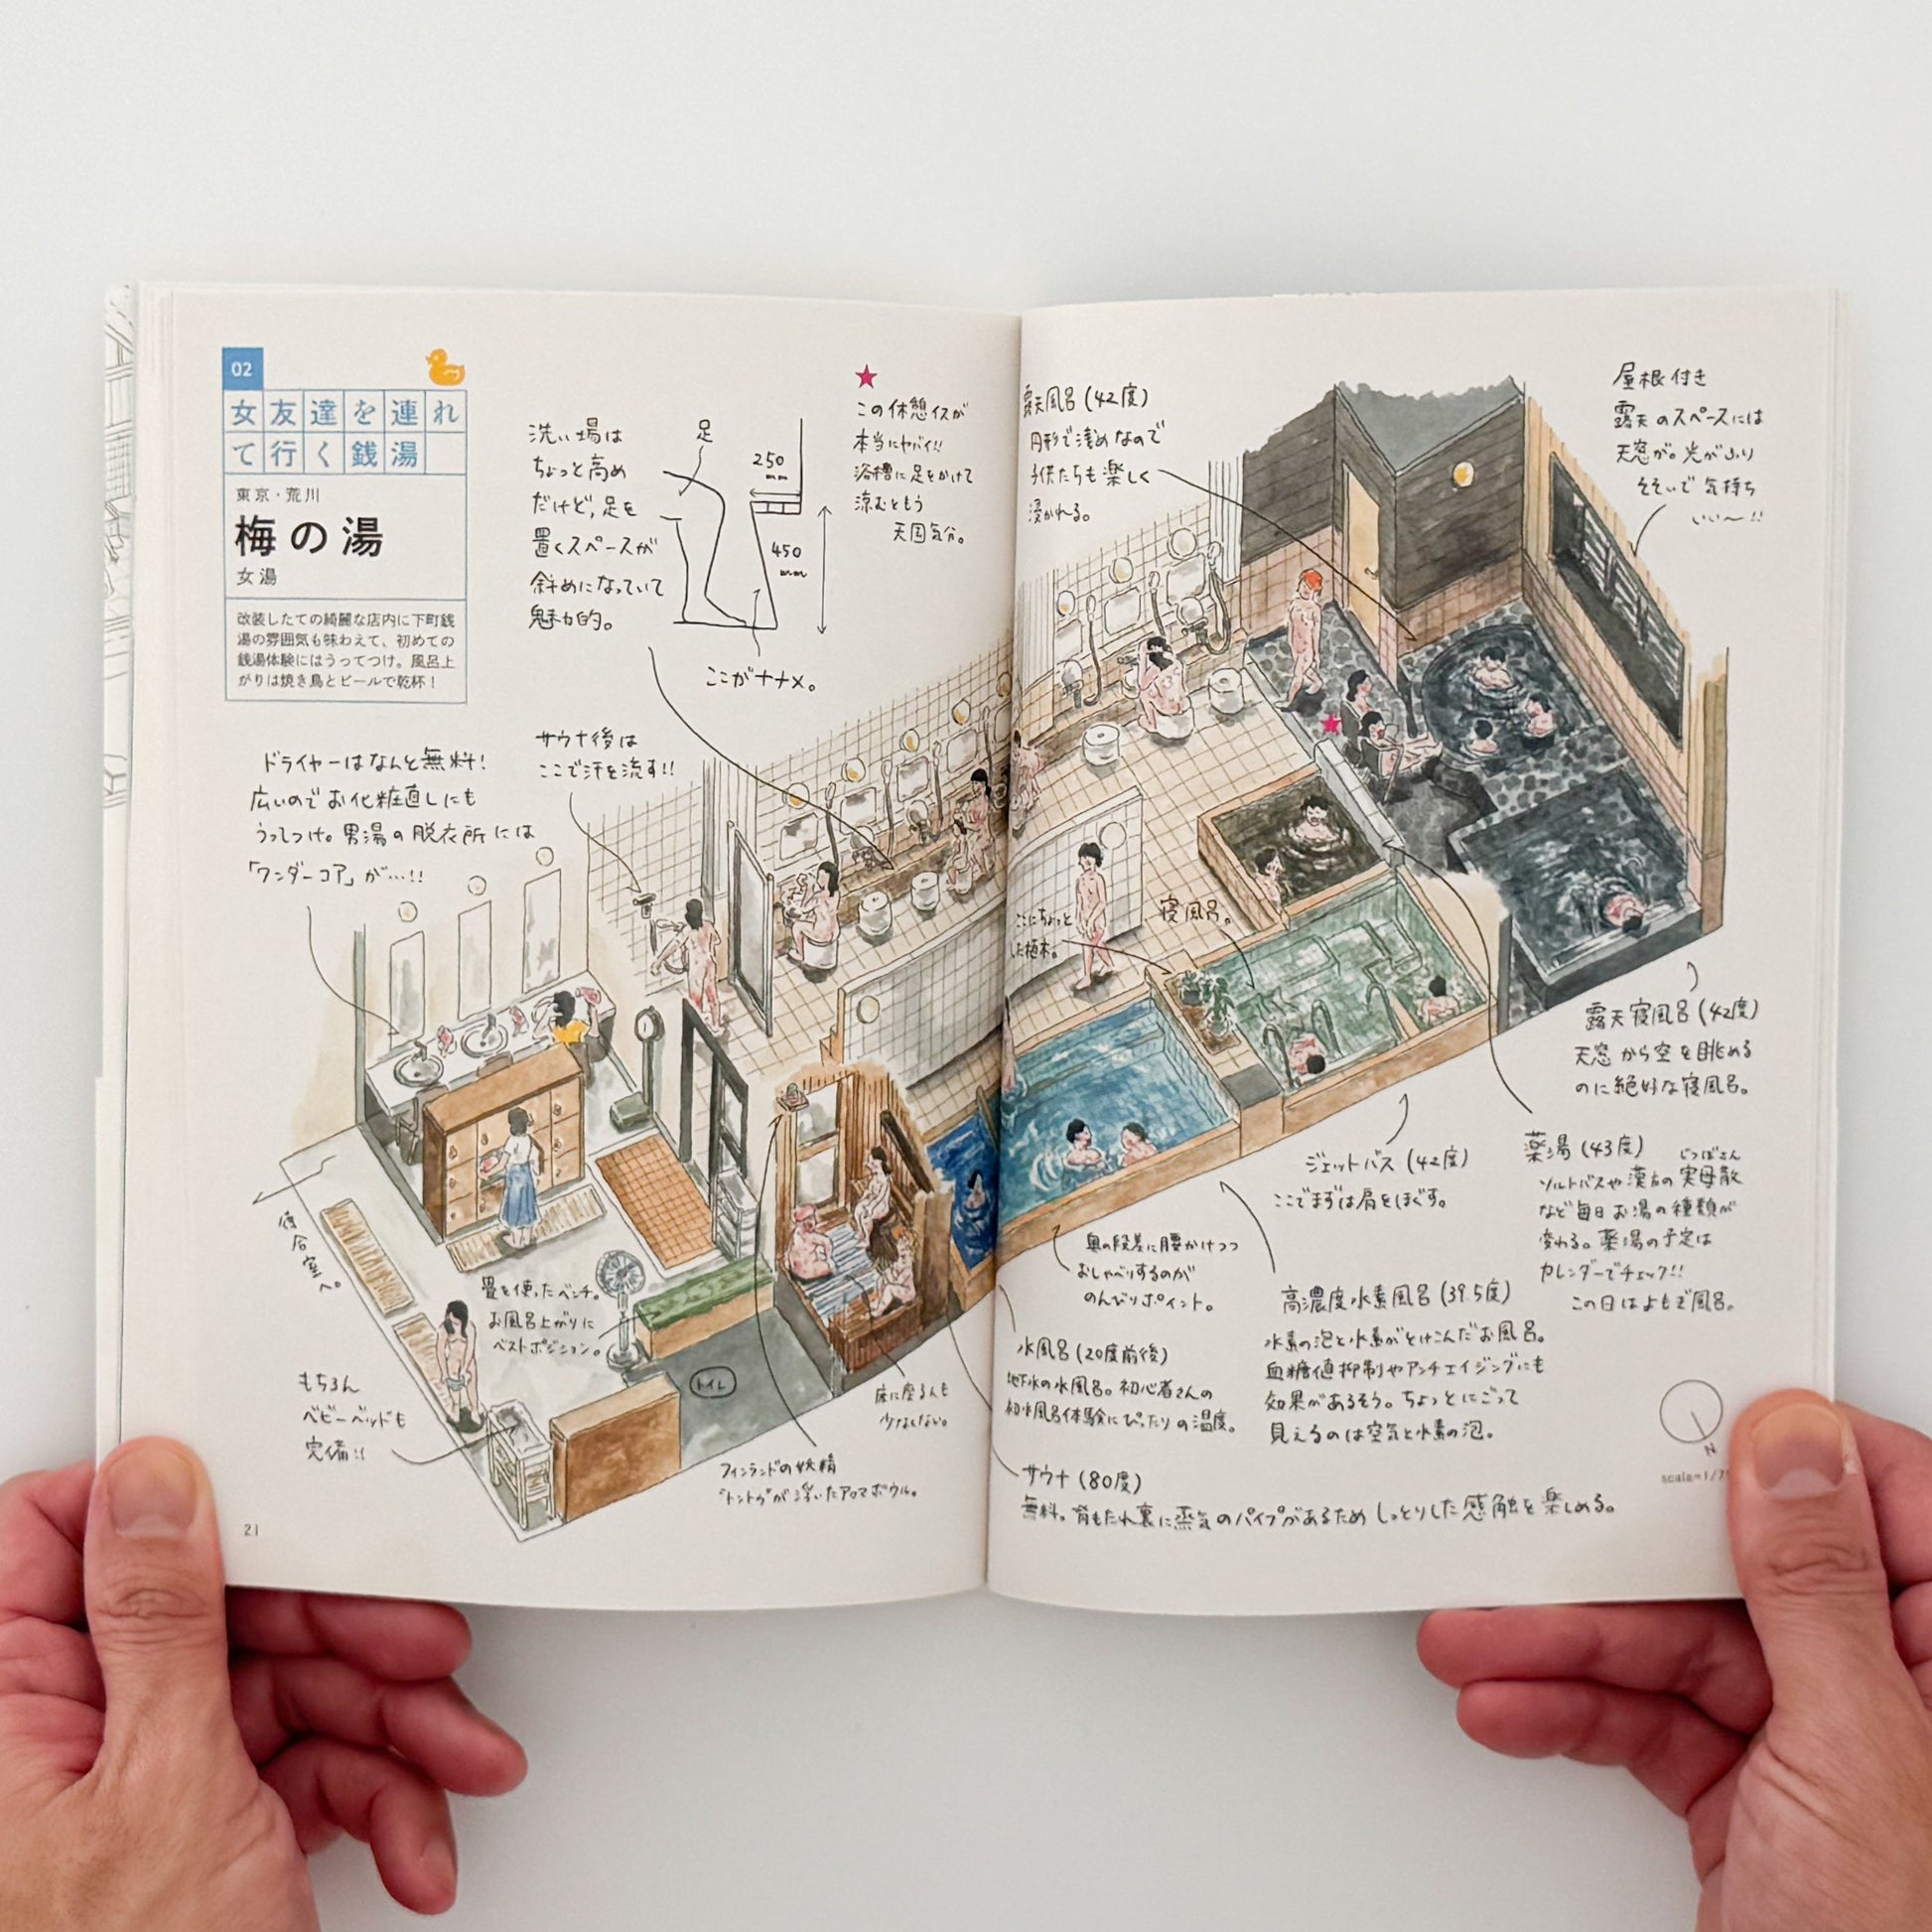 02
女友達を連れ
て行く銭湯
東京・荒川
梅の湯
女湯
改装したての綺麗な店内に下町銭
湯の雰囲気も味わえて、初めての
銭湯体験にはうってつけ。風呂上
がりは焼き鳥とビールで乾杯！
洗い場は
ちょっと高め
だけど、足を
置くスペースが
斜めになっていて
魅力的。
足
250
mm
450
mm
ここがナナメ。
★
この休憩イスが
本当にヤバイ!!
浴槽に足をかけて
涼むともう
天国気分。
ドライヤーはなんと無料!
広いのでお化粧直しにも
うってつけ。男湯の脱衣所には
「ワンダーコア」が…!!
サウナ後は
ここで汗を流す!!
待合室へ。
畳を使ったベンチ。
お風呂上がりに
ベストポジション。
もちろん
ベビーベッドも
完備!!
トイレ
フィンランドの妖精
"トントゥ"が浮いたアロマボウル。
床に座る人も
少なくない。
21
露天風呂(42度)
円形で浅めなので
子供たちも楽しく
浸かれる。
屋根付き
露天のスペースには
天窓が。光がふり
そそいで気持ち
いい〜!!
ここにちょっと
した植木。
寝風呂。
露天寝風呂(42度)
天窓から空を眺める
のに絶好な寝風呂。
ジェットバス(42度)
ここでまずは肩をほぐす。
薬湯(43度)
じつぼさん
ソルトバスや漢方の実母散
など毎日お湯の種類が
変わる。薬湯の予定は
カレンダーでチェック!!
この日はよもぎ風呂。
奥の段差に腰かけつつ
おしゃべりするのが
のんびりポイント。
高濃度水素風呂(39.5度)
水素の泡と水素がとけこんだお風呂。
血糖値抑制やアンチエイジングにも
効果があるそう。ちょっとにごって
見えるのは空気と水素の泡。
水風呂(20度前後)
地下水の水風呂。初心者さんの
初水風呂体験にぴったりの温度。
サウナ(80度)
無料。背もたれ裏に蒸気のパイプがあるためしっとりした感触を楽しめる。
N